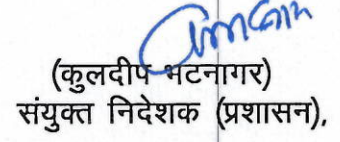 (कुलदीप भटनागर)
संयुक्त निदेशक (प्रशासन),